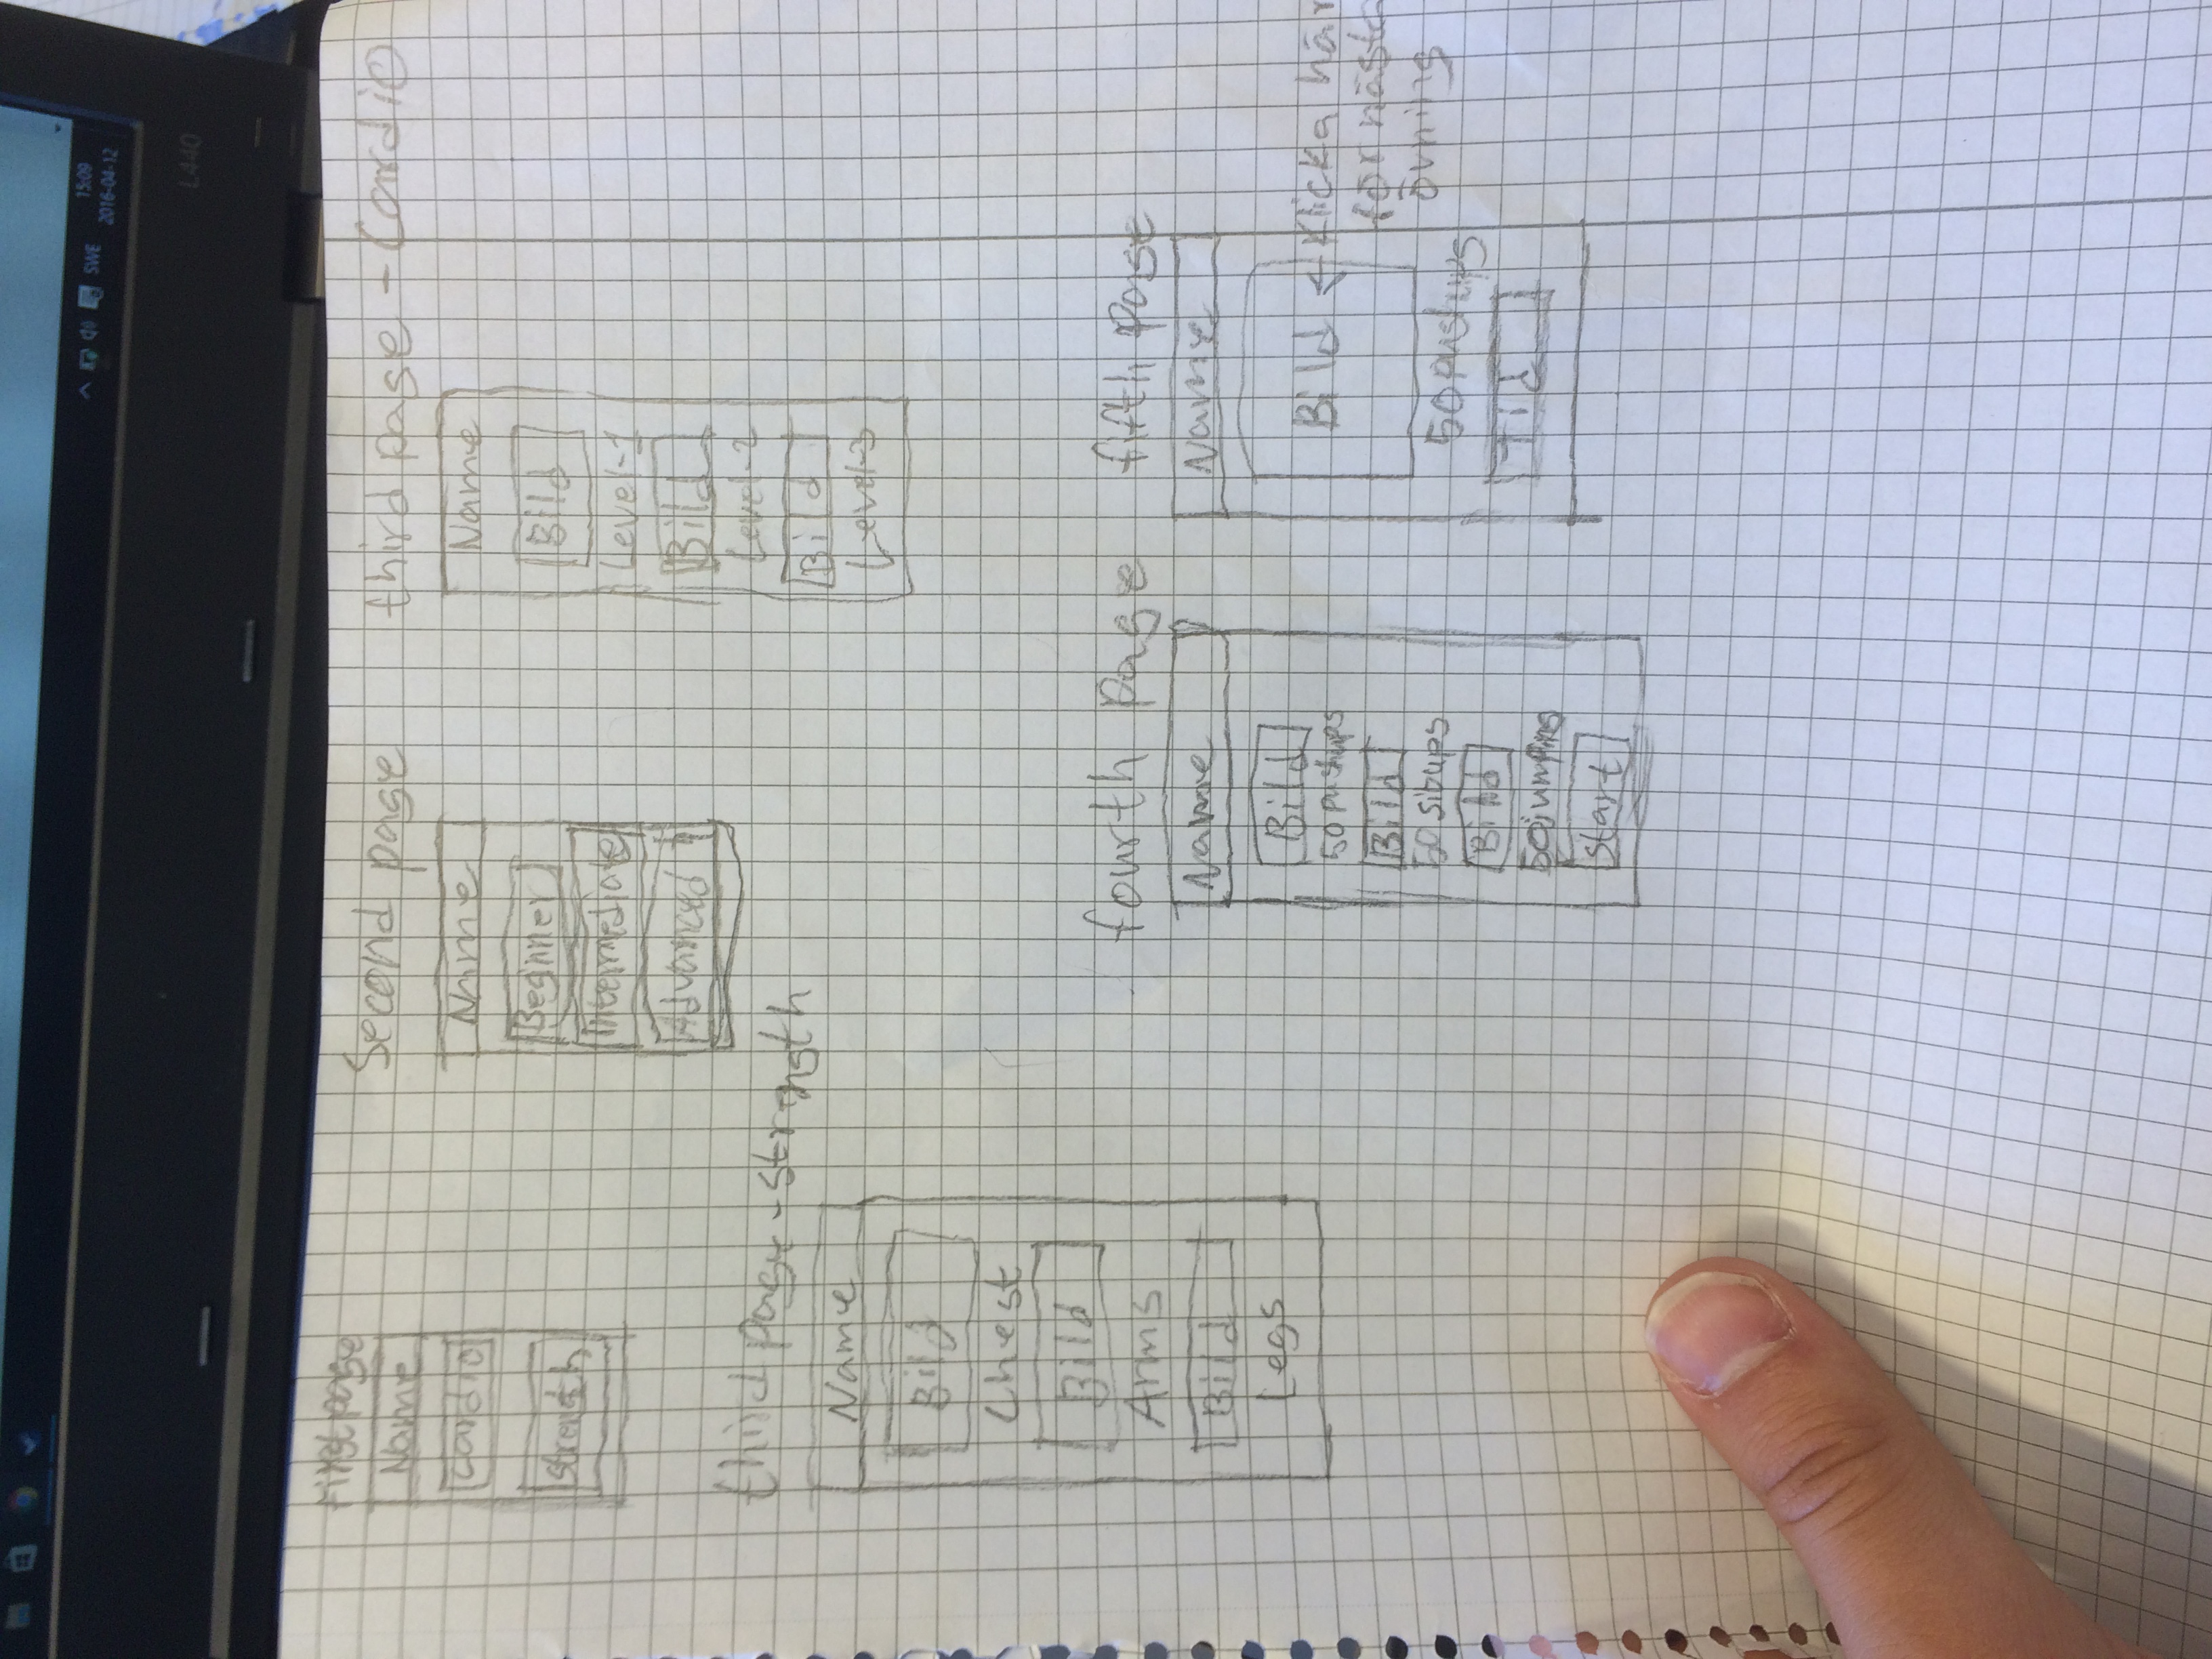 SWE
15:09
2016-04-12
L440
First page
Name
Cardio
Strength
Second page
Name
Beginner
Intermediate
Advanced
third page - Cardio
Name
Bild
Level-1
Bild
Level-2
Bild
Level-3
third page - strength
Name
Bild
Chest
Bild
Arms
Bild
Legs
fourth page
Name
Bild
50 pushups
Bild
50 situps
Bild
Start
fifth page
Name
Bild ← Klicka här
för nästa
övning
50 pushups
Tid